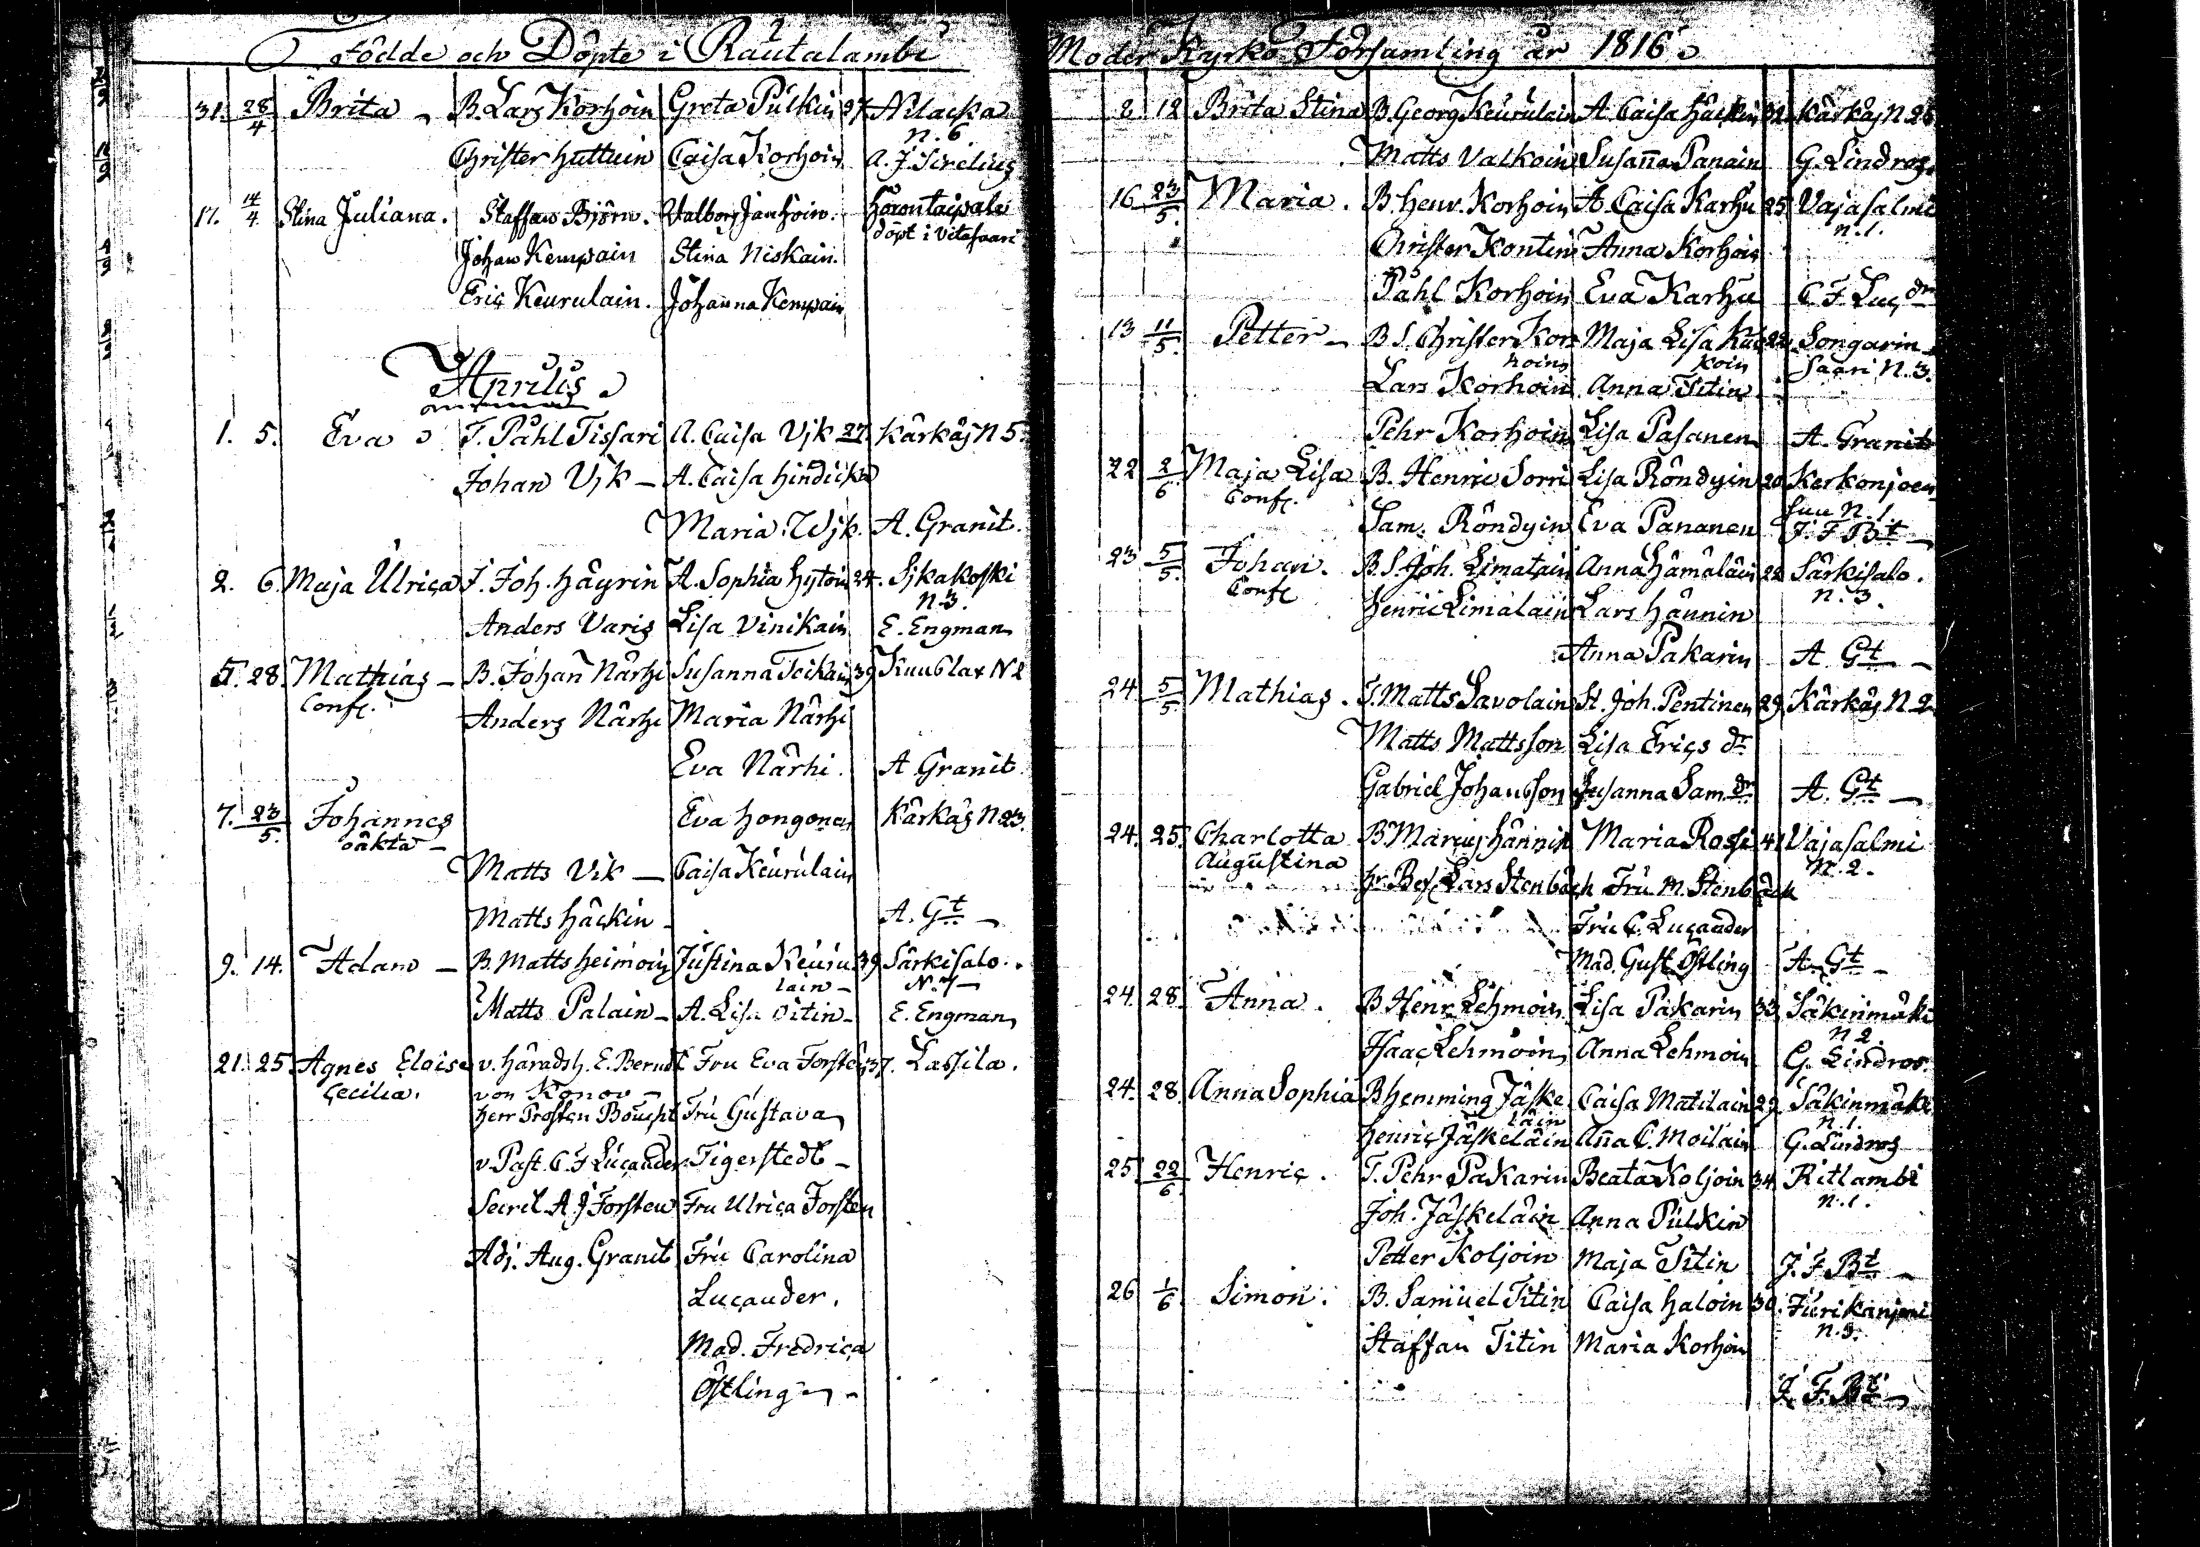 Födde och Döpte i Rautalambi
31. 28/4 Brita B. Lars Korhoin Greta Pulkin 27. Nilacka
n. 6
Christer Huttuin Caisa Korhoin A. J. Sirelius
17. 14/4 Stina Juliana. Staffan Björn. Valborg Janhoin.
döpt i Vitasaari
Johan Kempain Stina Niskain.
Eric Keurulain. Johanna Kempain
Aprilis
1. 5. Eva T. Påhl Tissari A. Caisa Vjk 27. Kärkäs N 5.
Johan Vjk A. Caisa
Maria Wjk. A. Granit.
2. 6. Maja Ulrica J. Joh. Häyrin A. Sophia Hytöin 24. Sjkakoski
n. 3.
Anders Varis Lisa Vinikain E. Engman
5. 28. Mathias B. Johan Närhi Susanna Teikain 39 N 2
Conf.
Anders Närhi Maria Närhi
Eva Närhi. A Granit
7. 23/5. Johannes Eva Hongonen Kärkäs N 23.
oäkta
Matts Vik Caisa Keurulain
Matts Häckin A. Gt
9. 14. Adam B. Matts Heimoin Justina Keuru 39 Särkisalo.
lain
Matts Palain A. Lisa Oitin E. Engman
21. 25 Agnes Eloise v. Häradsh. E. Berndt Fru Eva Forsten 37. Lassila.
Cecilia. von Konow
Herr Prosten Boucht Fru Gustava
v. Past. C. F Lucander Tigerstedt
Secret. A. J Forsten Fru Ulrica Forsten
Adj. Aug. Granit Fru Carolina
Lucander.
Mad. Fredrica
Östling
Moder Kyrko Församling år 1816
2. 12 Brita Stina B. Georg Keurulain A. Caisa Häckin 32. Kärkäs N 26
Matts Valkoin Susanna Panain G. Lindros.
16 23/5. Maria. B. Henr. Korhoin A. Caisa Karhu 25 Vajasalmi
n. 1.
Christer Kontin Anna Korhoin
Påhl Korhoin Eva Karhu C. F. Luc dr
13 11/5. Petter B. S. Christer Kor Maja Lisa 22 Songarin
hoin koin Saari N. 3.
Lars Korhoin Anna Titin
Pehr Korhoin Lisa Pasanen A. Granit
22 2/6 Maja Lisa B. Henric Sorri Lisa Röndyin 20 Kerkonjoen
Conf. Suu N. 1.
Sam. Röndyin Eva Pananen J. F Bt
23 5/5. Johan. B. S. Joh. Limatain Anna Hämäläin 22 Särkisalo.
Conf. n. 3.
Henric Limatain Lars Hännin
Anna Pakarin A Gt
24 5/5. Mathias. T. Matts Savolain St. Joh. Pentinen 29. Kärkäs N. 2
Matts Mattsson Lisa Erics dr
Gabriel Johansson Susanna Sam. dr A. Gt
24. 25. Charlotta B Marcus Hännin Maria Rossi 41 Vajasalmi
Augustina N. 2.
Hr. Bef. Lars Stenbäck Fru M. Stenbäck
Fru C. Lucander
Mad. Gust Östling A. Gt
24. 28. Anna. B Henr. Lehmoin Lisa Pakarin 33 Säkinmäki
N 2
Isaac Lehmoin Anna Lehmoin G. Lindros.
24. 28. Anna Sophia B Hemming Jäske Caisa Matilain 29. Säkinmäki
läin n. 1.
Henric Jäskeläin Anna C. Moilain G. Lindros
25. 22/6 Henric. T. Pehr Pakarin Beata Koljoin 34. Ritlambi
n. 1.
Joh. Jäskeläin Anna Pulkin
Petter Koljoin Maja Titin J. F. Bt
26 1/6 Simon. B. Samuel Titin Caisa Haloin 30.
n. 3.
Staffan Titin Maria Korhoin
J. F. Bt